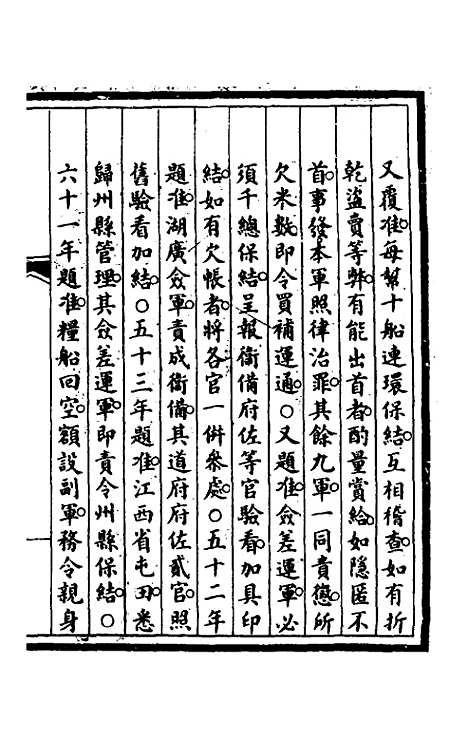 又覆准每幫十船連環保結互相稽查如有折
乾盜賣等弊有能出首者酌量賞給如隱匿不
首事發本軍照律治罪其餘九軍一同責懲所
欠米數即令買補運通○又題准僉差運軍必
須千總保結呈報衞備府佐等官驗看加具印
結如有欠帳者將各官一併叅處○五十二年
題准湖廣僉軍責成衞備其道府府佐貳官照
舊驗看加結○五十三年題准江西省屯田悉
歸州縣管理其僉差運軍即責令州縣保結○
六十一年題准糧船回空額設副軍務令親身